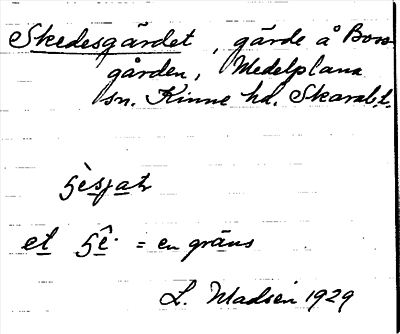 Skedesgärdet, gärde å Bors-
gården, Medelplana
sn. Kinne hd. Skarab.l.
et = en gräns
L. Madsén 1929